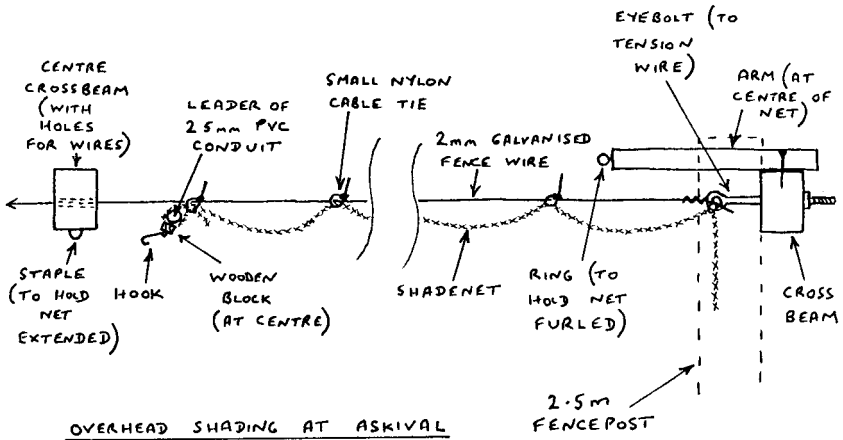 CENTRE
CROSSBEAM
(WITH
HOLES
FOR WIRES)
LEADER OF
25mm PVC
CONDUIT
SMALL NYLON
CABLE TIE
2mm GALVANISED
FENCE WIRE
EYEBOLT (TO
TENSION
WIRE)
ARM (AT
CENTRE OF
NET)
STAPLE
(TO HOLD
NET
EXTENDED)
HOOK
WOODEN
BLOCK
(AT CENTRE)
SHADENET
RING (TO
HOLD NET
FURLED)
CROSS
BEAM
2.5m
FENCEPOST
OVERHEAD SHADING AT ASKIVAL